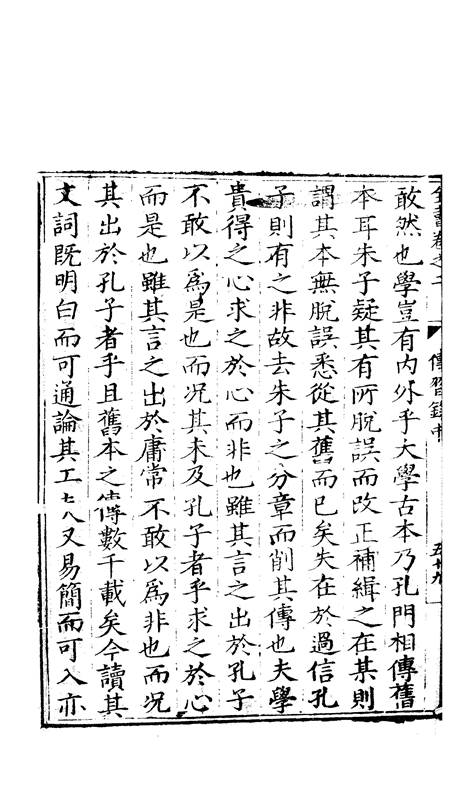 全書卷之二 傳習錄中 五十九
敢然也學豈有内外乎大學古本乃孔門相傳舊
本耳朱子疑其有所脫誤而改正補緝之在某則
謂其本無脫誤悉從其舊而已矣失在於過信孔
子則有之非故去朱子之分章而削其傳也夫學
貴得之心求之於心而非也雖其言之出於孔子
不敢以爲是也而况其未及孔子者乎求之於心
而是也雖其言之出於庸常不敢以爲非也而况
其出於孔子者乎且舊本之傳數千載矣今讀其
文詞旣明白而可通論其工夫又易簡而可入亦